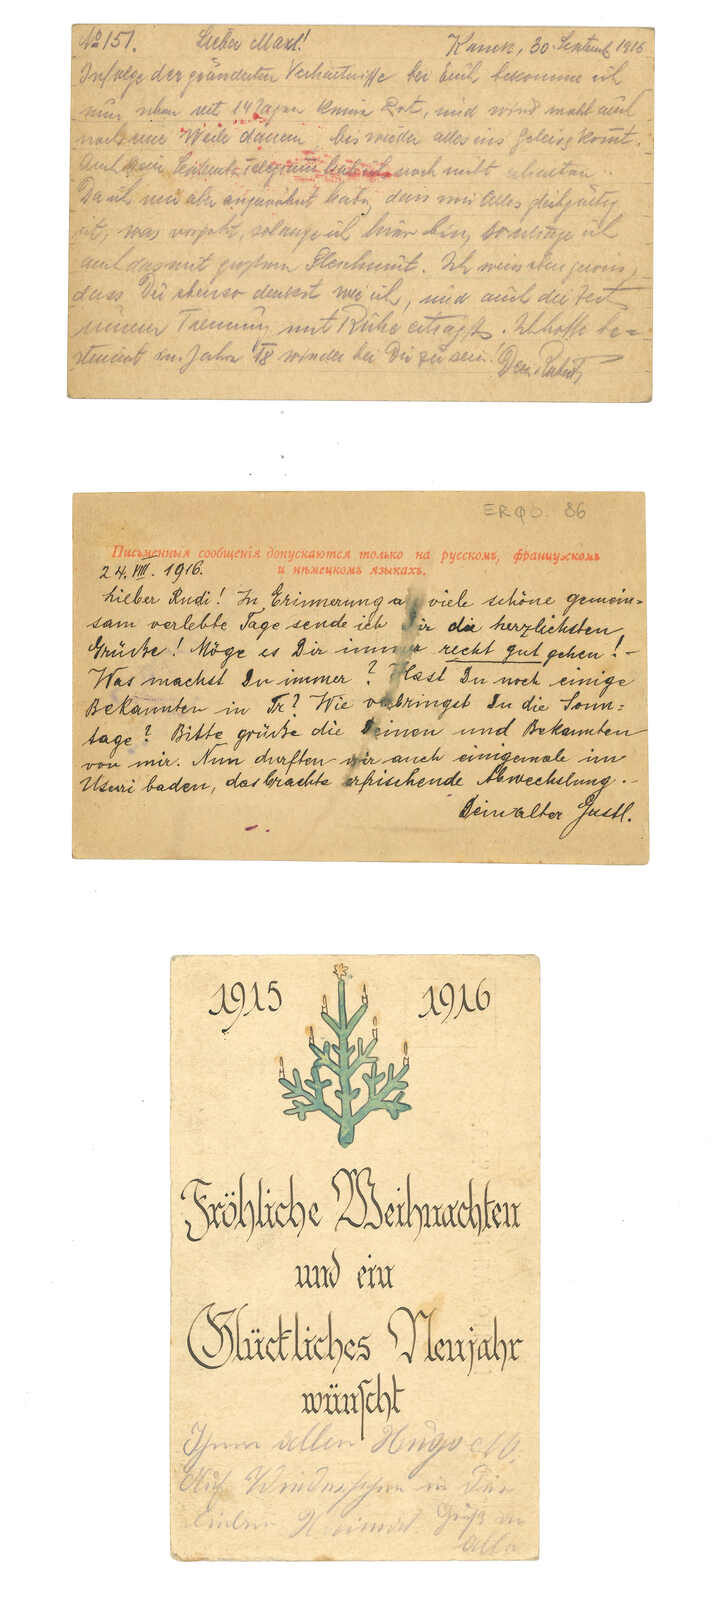 No 151. Lieber Maxl! Kansk, 30. Septemb 1916
Infolge der geänderten Verhältnisse bei Euch bekomme ich
nun schon seit 14 Tagen keine Post, und wird wohl auch
noch eine Weile dauern bis wieder alles ins Geleise kommt.
Auch dein Telegramm habe ich noch nicht erhalten.
Da ich nun aber angewöhnt habe, dass mir Alles gleichgültig
ist, was vorgeht, solange ich hier bin, so ertrage ich
auch das mit grossem Gleichmut. Ich weiss aber gewiss,
dass Du ebenso denkst wie ich, und auch die Zeit
unserer Trennung mit Ruhe erträgst. Ich hoffe be=
stimmt im Jahre '18 wieder bei Dir zu sein! Dein Robert
ERGO. 86
Письменныя сообщенія допускаются только на русскомъ, французскомъ
и нѣмецкомъ языкахъ.
24. VIII. 1916.
Lieber Rudi! In Erinnerung a viele schöne gemein=
sam verlebte Tage sende ich Dir die herzlichsten
Grüsse! Möge es Dir immer recht gut gehen! -
Was machst Du immer? Hast Du noch einige
Bekannten in Tr? Wie verbringst Du die Sonn=
tage? Bitte grüsse die Deinen und Bekannten
von mir. Nun durften wir auch einigemale im
Usuri baden, das brachte erfrischende Abwechslung. -
Dein alter Gustl.
1915 1916
Fröhliche Weihnachten
und ein
Glückliches Neujahr
wünscht
Ihnen allen Hugo M.
Auf Wiedersehen in der
lieben Heimat Gruß an
alle